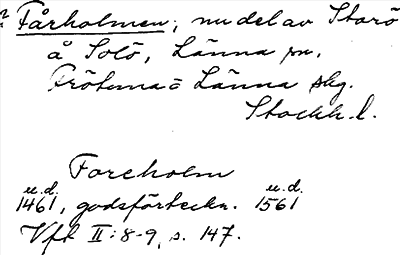 Fårholmen; nu del av Storö
å Solö, Länna sn.
Frötuna = Länna skg.
Stockh. l.
Foreholm
u.d. u.d.
1461, godsförteckn. 1561
Vft II:8-9, s. 147.